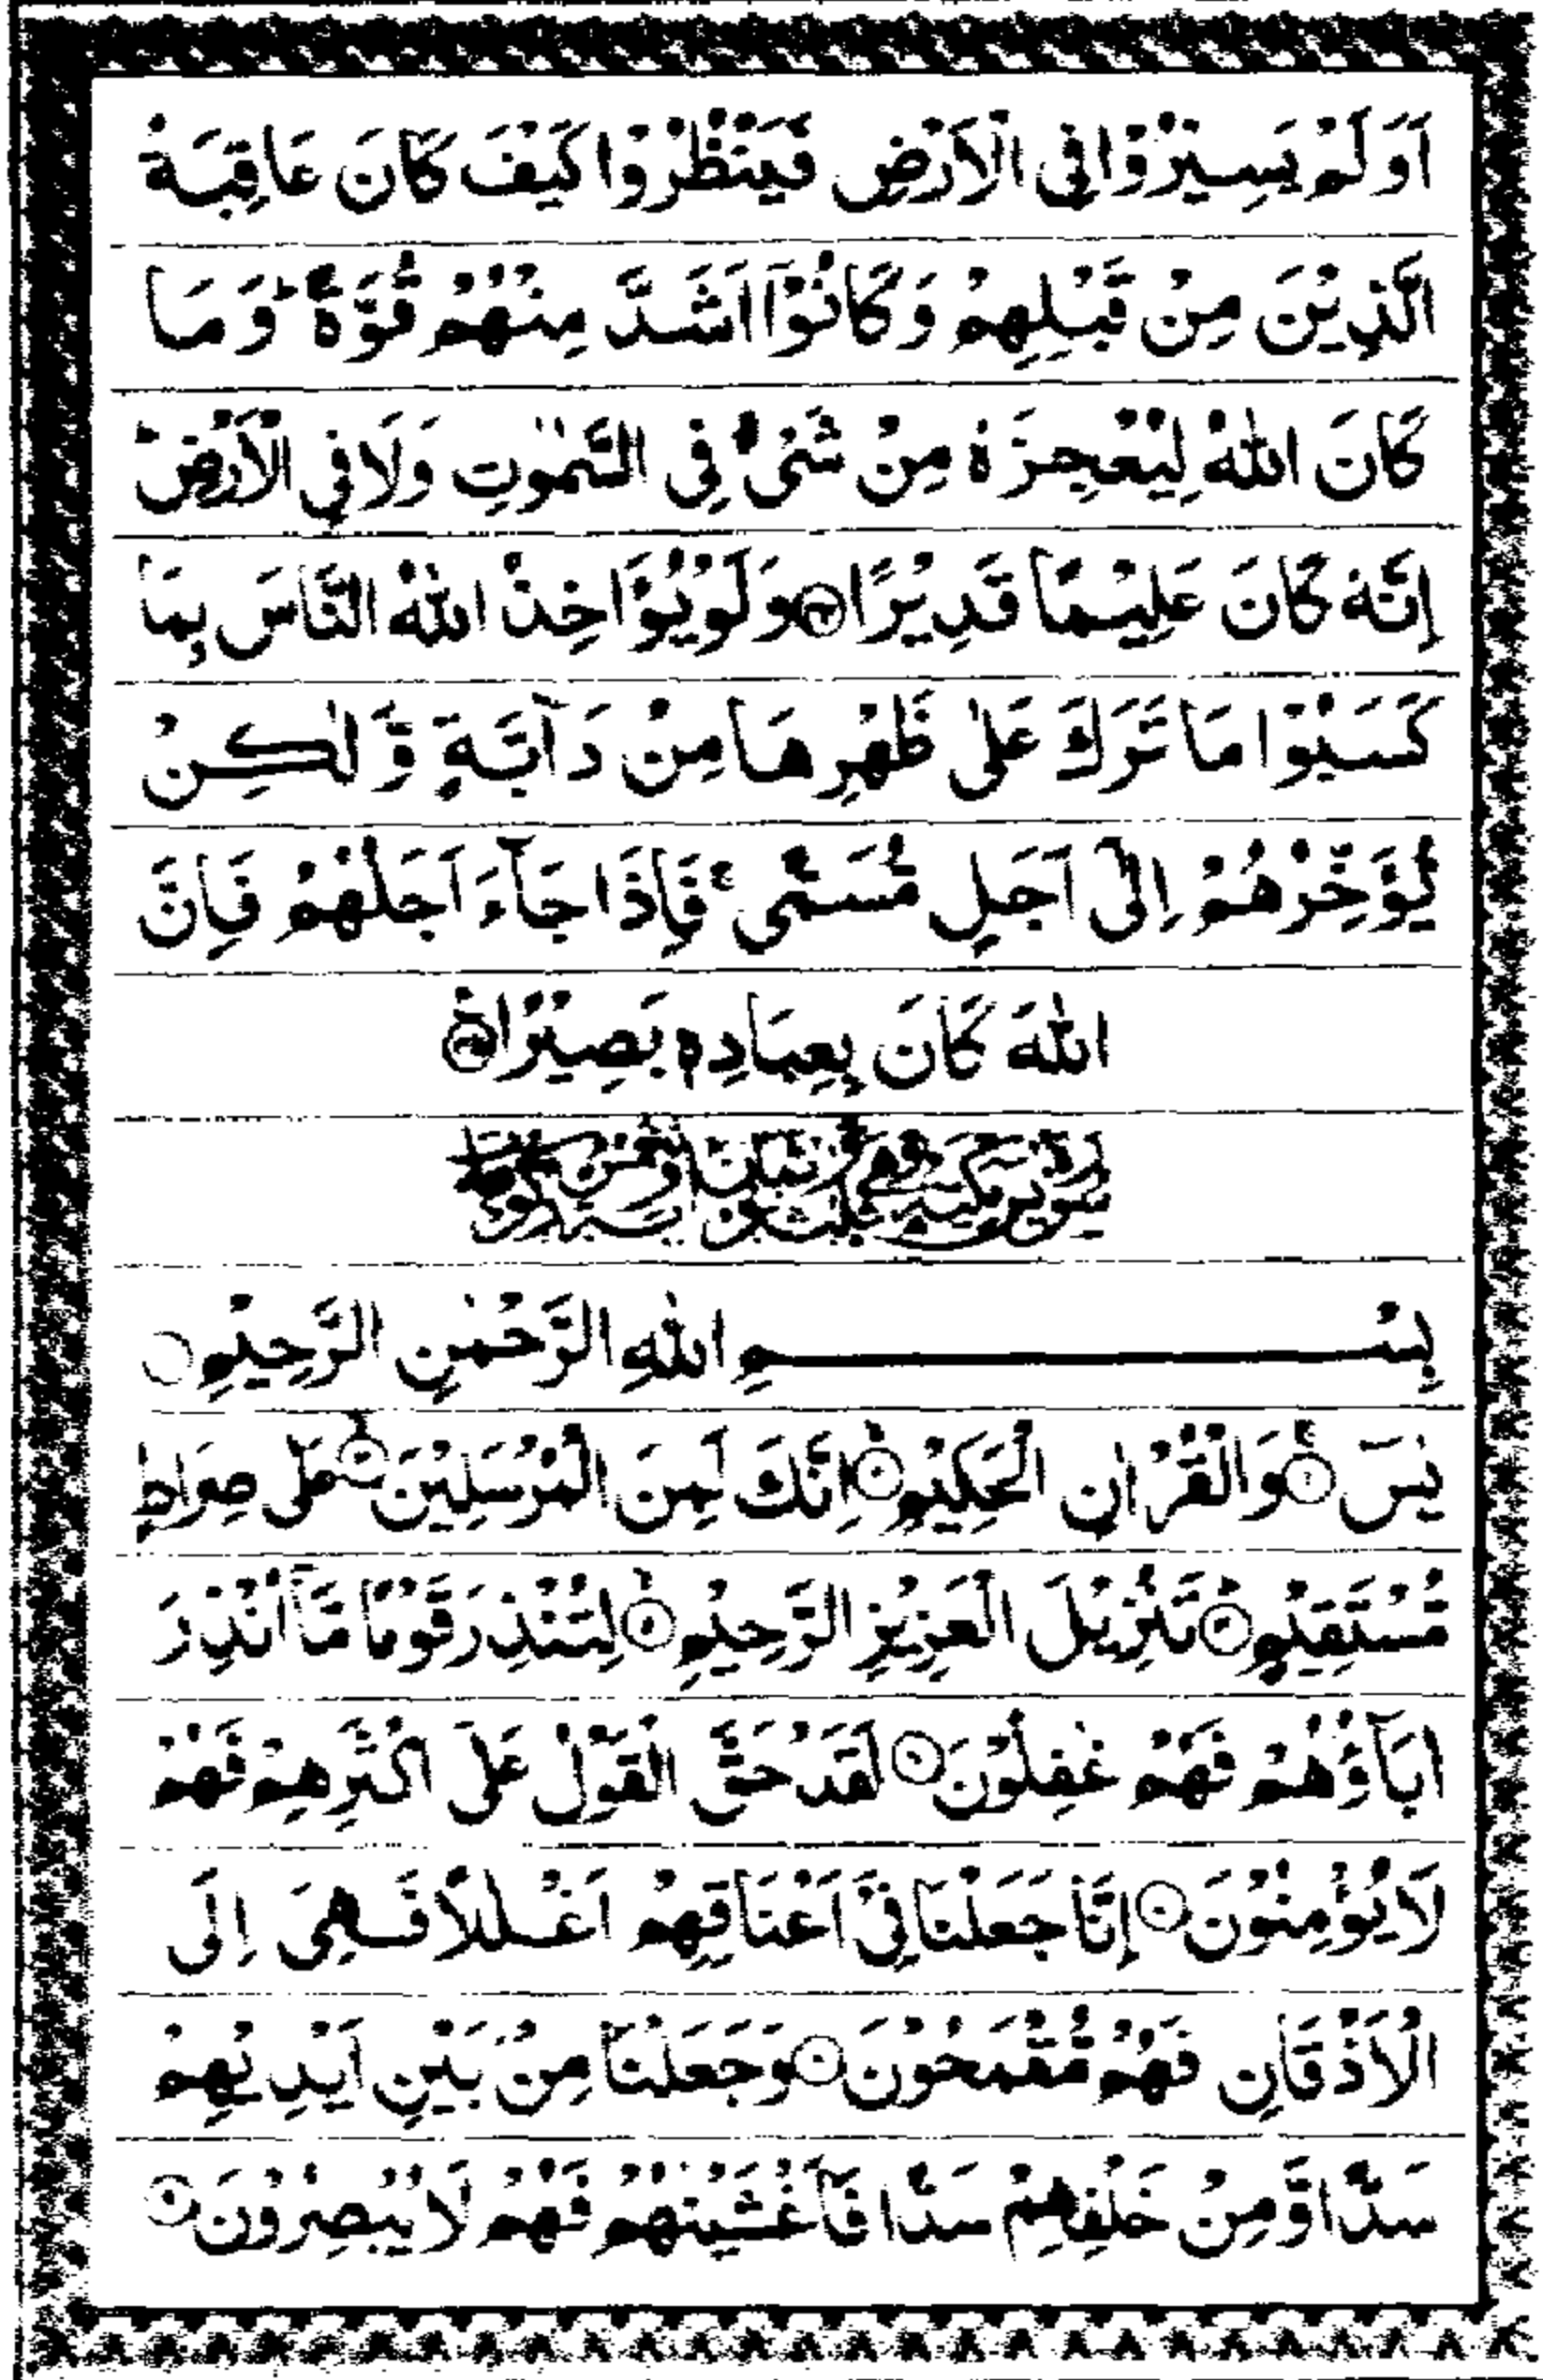 اَوَلَمْ يَسِيْرُوْا فِي الْاَرْضِ فَيَنْظُرُوْا كَيْفَ كَانَ عَاقِبَةُ
الَّذِيْنَ مِنْ قَبْلِهِمْ وَكَانُوْٓا اَشَدَّ مِنْهُمْ قُوَّةً ؕ وَمَا
كَانَ اللّٰهُ لِيُعْجِزَهٗ مِنْ شَيْءٍ فِي السَّمٰوٰتِ وَلَا فِي الْاَرْضِ ؕ
اِنَّهٗ كَانَ عَلِيْمًا قَدِيْرًا ۝ وَلَوْ يُؤَاخِذُ اللّٰهُ النَّاسَ بِمَا
كَسَبُوْا مَا تَرَكَ عَلٰى ظَهْرِهَا مِنْ دَآبَّةٍ وَّلٰكِنْ
يُّؤَخِّرُهُمْ اِلٰٓى اَجَلٍ مُّسَمًّى ۚ فَاِذَا جَآءَ اَجَلُهُمْ فَاِنَّ
اللّٰهَ كَانَ بِعِبَادِهٖ بَصِيْرًا ۝
بِسْمِ اللّٰهِ الرَّحْمٰنِ الرَّحِيْمِ ۝
يٰسٓ ۝ وَالْقُرْاٰنِ الْحَكِيْمِ ۝ اِنَّكَ لَمِنَ الْمُرْسَلِيْنَ ۝ عَلٰى صِرَاطٍ
مُّسْتَقِيْمٍ ۝ تَنْزِيْلَ الْعَزِيْزِ الرَّحِيْمِ ۝ لِتُنْذِرَ قَوْمًا مَّآ اُنْذِرَ
اٰبَآؤُهُمْ فَهُمْ غٰفِلُوْنَ ۝ لَقَدْ حَقَّ الْقَوْلُ عَلٰٓى اَكْثَرِهِمْ فَهُمْ
لَا يُؤْمِنُوْنَ ۝ اِنَّا جَعَلْنَا فِيْٓ اَعْنَاقِهِمْ اَغْلٰلًا فَهِيَ اِلَى
الْاَذْقَانِ فَهُمْ مُّقْمَحُوْنَ ۝ وَجَعَلْنَا مِنْۢ بَيْنِ اَيْدِيْهِمْ
سَدًّا وَّمِنْ خَلْفِهِمْ سَدًّا فَاَغْشَيْنٰهُمْ فَهُمْ لَا يُبْصِرُوْنَ ۝